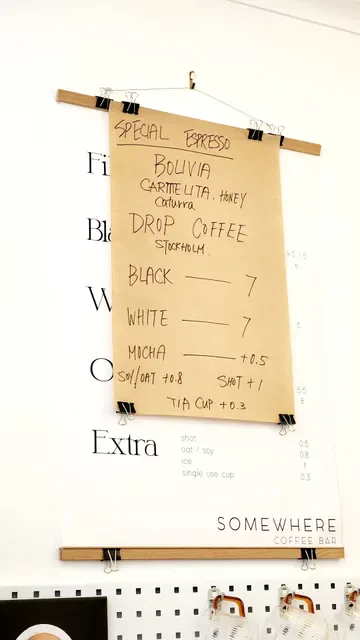 SPECIAL ESPRESSO
BOLIVIA
CARMELITA. HONEY
Caturra
DROP COFFEE
STOCKHOLM.
BLACK — 7
WHITE — 7
MOCHA — +0.5
SOY/OAT +0.8 SHOT +1
TIA CUP +0.3
Fi
Bla
W
O
Extra
shot 0.5
oat / soy 0.8
ice
single use cup 0.3
SOMEWHERE
COFFEE BAR